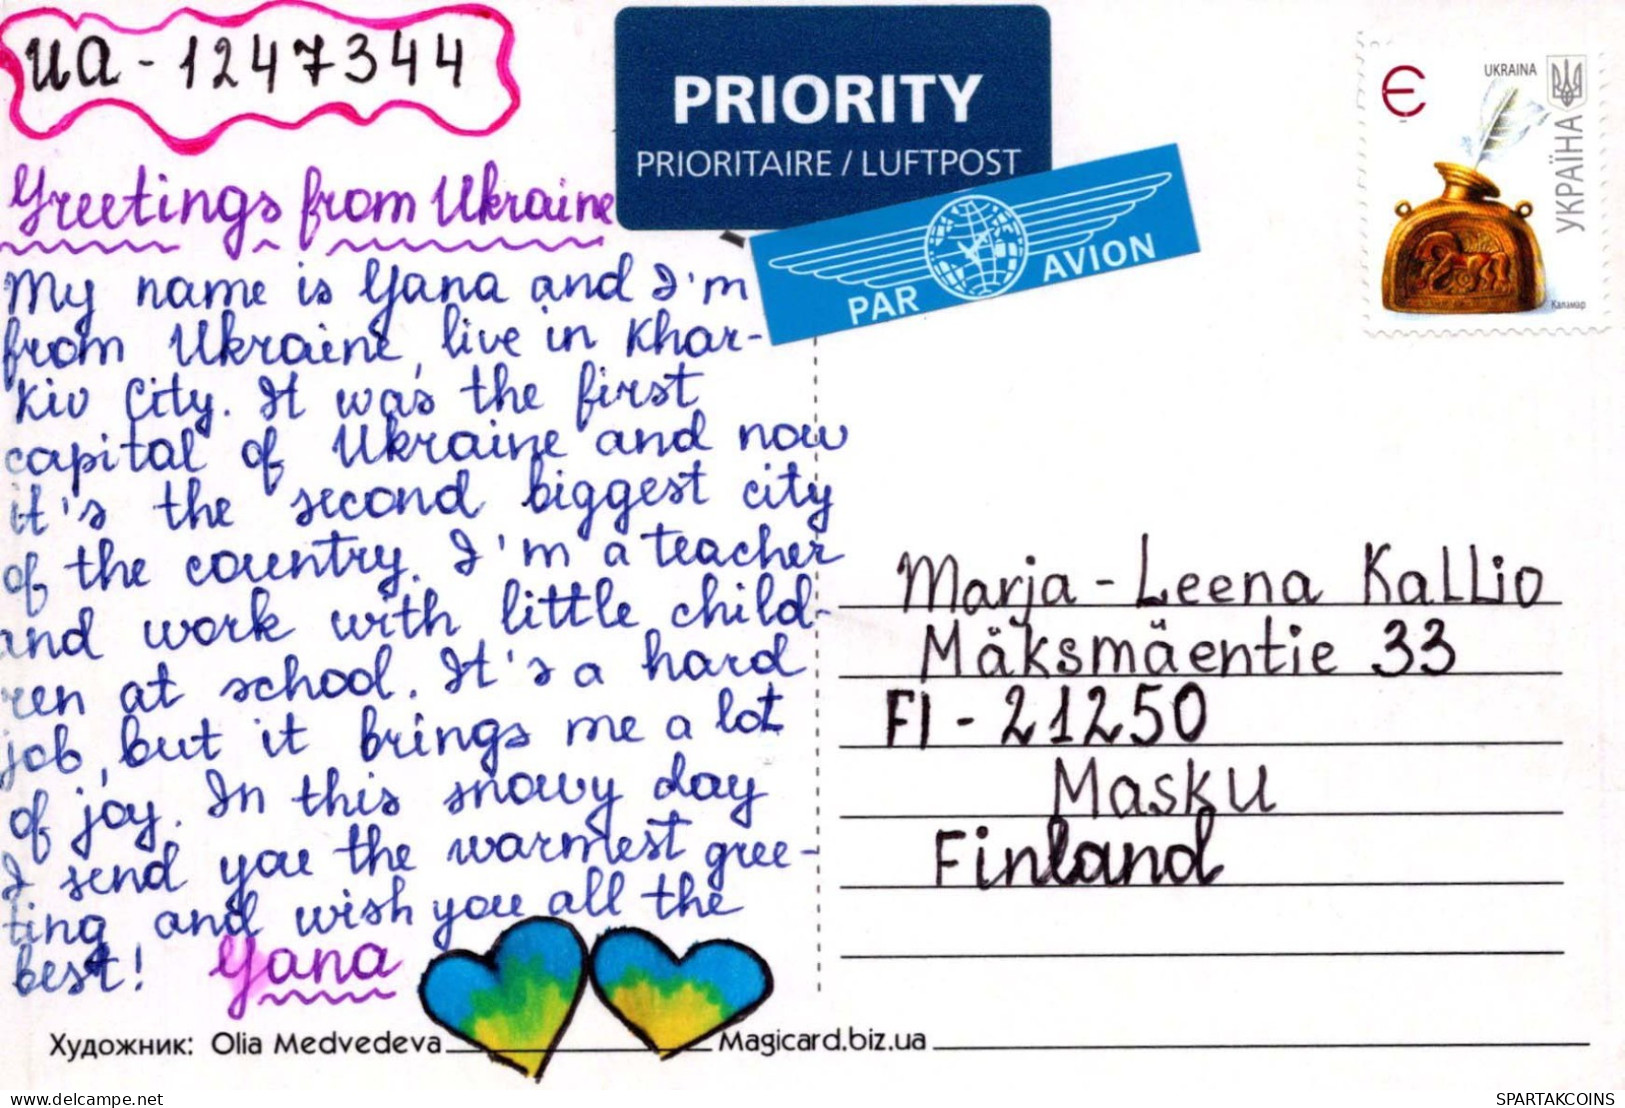 UA - 1247344
PRIORITY
PRIORITAIRE / LUFTPOST
PAR AVION
UKRAINA
Є
УКРАЇНА
Каламар
Greetings from Ukraine
My name is Yana and I'm
from Ukraine, live in Khar-
kiv City. It was the first
capital of Ukraine and now
it's the second biggest city
of the country. I'm a teacher
and work with little child-
ren at school. It's a hard
job, but it brings me a lot
of joy. In this snowy day
I send you the warmest gree-
ting and wish you all the
best! Yana
Marja-Leena Kallio
Mäksmäentie 33
FI - 21250
Masku
Finland
Художник: Olia Medvedeva
Magicard.biz.ua
www.delcampe.net
Tyhlenn
SPARTAKCOINS